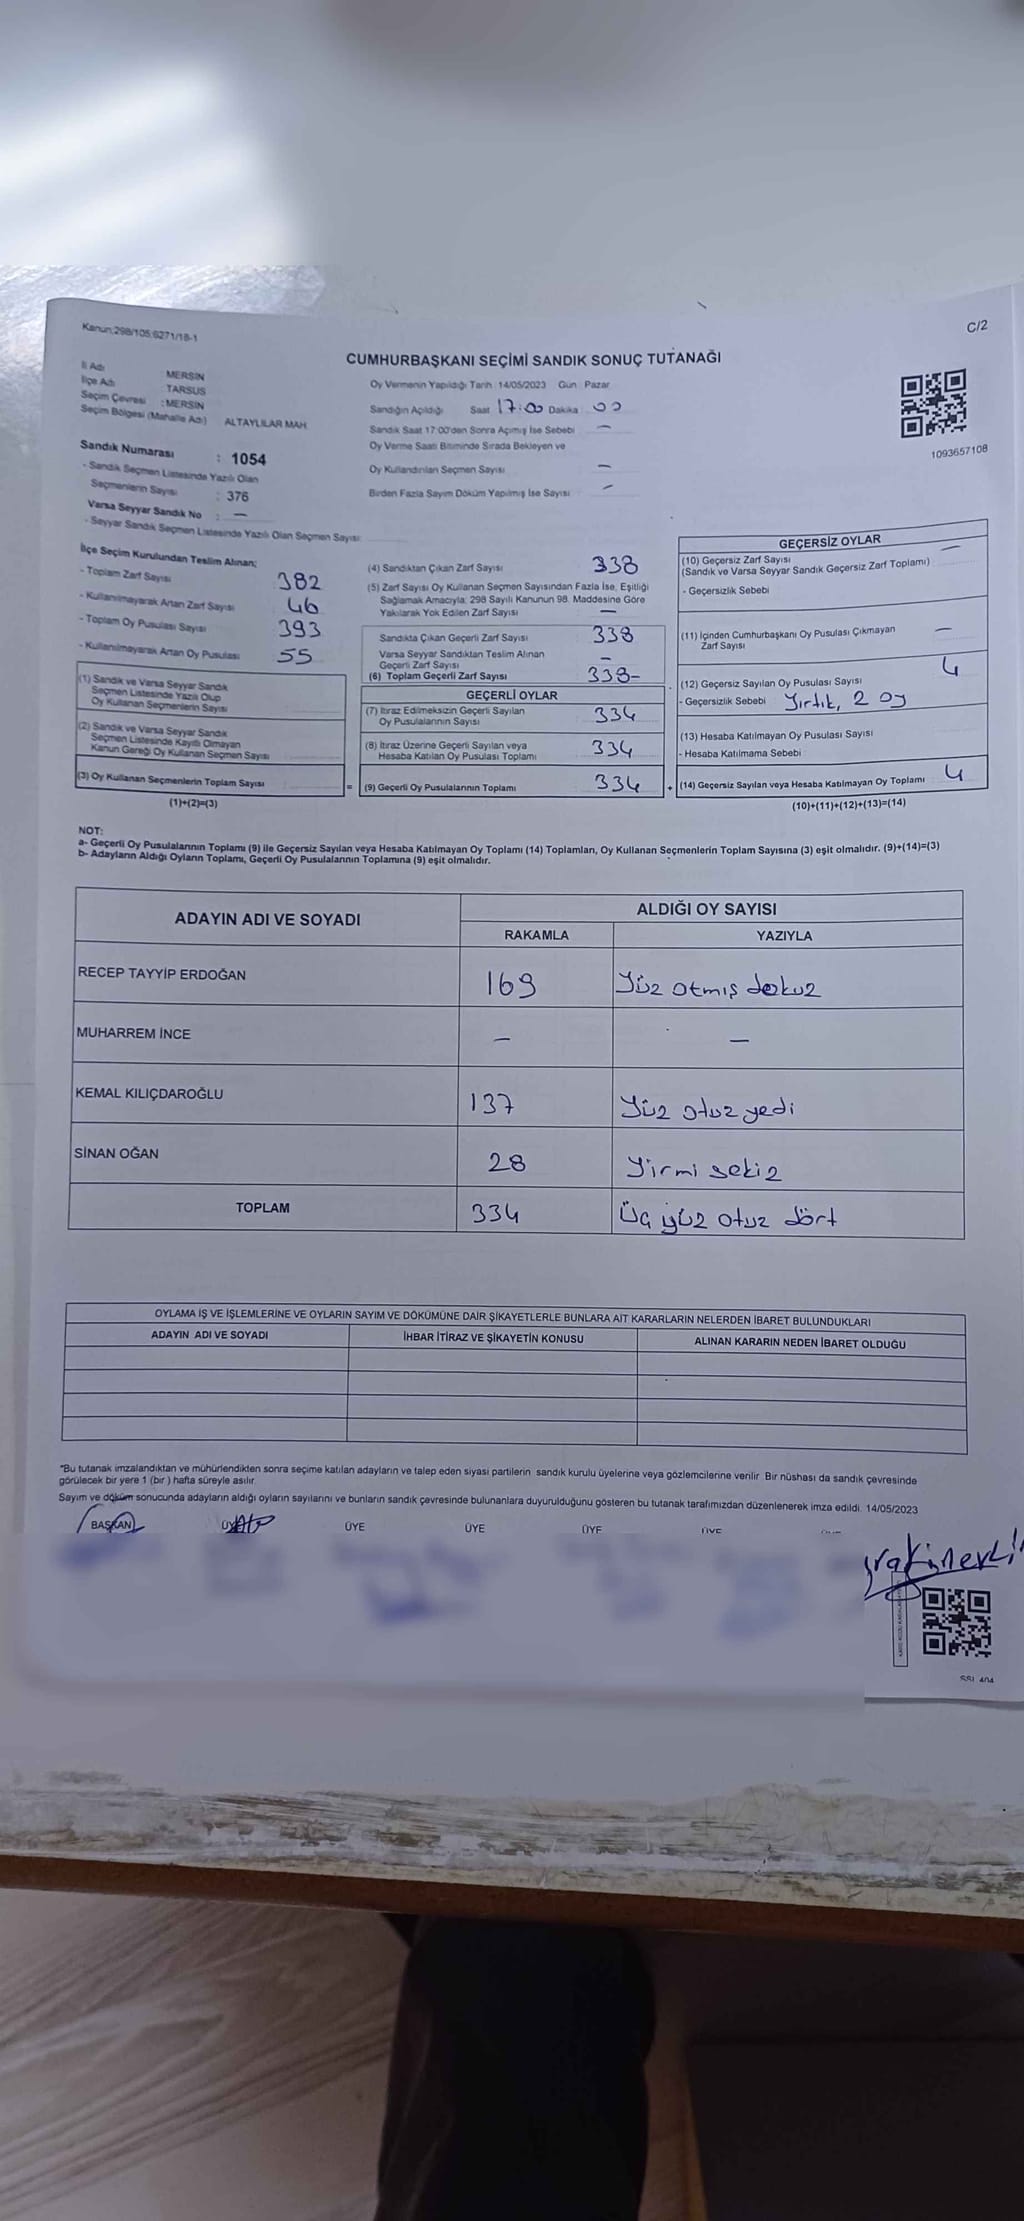 Kanun;298/105;6271/18-1
C/2
CUMHURBAŞKANI SEÇİMİ SANDIK SONUÇ TUTANAĞI
İl Adı : MERSİN
İlçe Adı : TARSUS
Seçim Çevresi : MERSİN
Seçim Bölgesi (Mahalle Adı) ALTAYLILAR MAH.
Sandık Numarası : 1054
- Sandık Seçmen Listesinde Yazılı Olan
Seçmenlerin Sayısı : 376
Varsa Seyyar Sandık No : —
- Seyyar Sandık Seçmen Listesinde Yazılı Olan Seçmen Sayısı:
Oy Vermenin Yapıldığı Tarih :14/05/2023 Gün : Pazar
Sandığın Açıldığı Saat 17:00 Dakika 00
Sandık Saat 17:00'den Sonra Açımış İse Sebebi —
Oy Verme Saati Bitiminde Sırada Bekleyen ve
Oy Kullandırılan Seçmen Sayısı —
Birden Fazla Sayım Döküm Yapılmış İse Sayısı —
1093657108
İlçe Seçim Kurulundan Teslim Alınan;
- Toplam Zarf Sayısı 382
- Kullanılmayarak Artan Zarf Sayısı 46
- Toplam Oy Pusulası Sayısı 393
- Kullanılmayarak Artan Oy Pusulası 55
(1) Sandık ve Varsa Seyyar Sandık
Seçmen Listesinde Yazılı Olup
Oy Kullanan Seçmenlerin Sayısı
(2) Sandık ve Varsa Seyyar Sandık
Seçmen Listesinde Kayıtlı Olmayan
Kanun Gereği Oy Kullanan Seçmen Sayısı
(3) Oy Kullanan Seçmenlerin Toplam Sayısı
(1)+(2)=(3)
=
(4) Sandıktan Çıkan Zarf Sayısı 338
(5) Zarf Sayısı Oy Kullanan Seçmen Sayısından Fazla İse, Eşitliği
Sağlamak Amacıyla; 298 Sayılı Kanunun 98. Maddesine Göre
Yakılarak Yok Edilen Zarf Sayısı —
Sandıkta Çıkan Geçerli Zarf Sayısı 338
Varsa Seyyar Sandıktan Teslim Alınan
Geçerli Zarf Sayısı —
(6) Toplam Geçerli Zarf Sayısı 338-
GEÇERLİ OYLAR
(7) İtiraz Edilmeksizin Geçerli Sayılan
Oy Pusulalarının Sayısı 334
(8) İtiraz Üzerine Geçerli Sayılan veya
Hesaba Katılan Oy Pusulası Toplamı 334
(9) Geçerli Oy Pusulalarının Toplamı 334
+
GEÇERSİZ OYLAR
(10) Geçersiz Zarf Sayısı —
(Sandık ve Varsa Seyyar Sandık Geçersiz Zarf Toplamı)
- Geçersizlik Sebebi
(11) İçinden Cumhurbaşkanı Oy Pusulası Çıkmayan —
Zarf Sayısı
(12) Geçersiz Sayılan Oy Pusulası Sayısı 4
- Geçersizlik Sebebi Yırtık, 2 oy
(13) Hesaba Katılmayan Oy Pusulası Sayısı
- Hesaba Katılmama Sebebi
(14) Geçersiz Sayılan veya Hesaba Katılmayan Oy Toplamı 4
(10)+(11)+(12)+(13)=(14)
NOT:
a- Geçerli Oy Pusulalarının Toplamı (9) ile Geçersiz Sayılan veya Hesaba Katılmayan Oy Toplamı (14) Toplamları, Oy Kullanan Seçmenlerin Toplam Sayısına (3) eşit olmalıdır. (9)+(14)=(3)
b- Adayların Aldığı Oyların Toplamı, Geçerli Oy Pusulalarının Toplamına (9) eşit olmalıdır.
ADAYIN ADI VE SOYADI ALDIĞI OY SAYISI
RAKAMLA YAZIYLA
RECEP TAYYİP ERDOĞAN 169 Yüz otmış dokuz
MUHARREM İNCE — —
KEMAL KILIÇDAROĞLU 137 Yüz otuz yedi
SİNAN OĞAN 28 Yirmi sekiz
TOPLAM 334 Üç yüz otuz dört
OYLAMA İŞ VE İŞLEMLERİNE VE OYLARIN SAYIM VE DÖKÜMÜNE DAİR ŞİKAYETLERLE BUNLARA AİT KARARLARIN NELERDEN İBARET BULUNDUKLARI
ADAYIN ADI VE SOYADI İHBAR İTİRAZ VE ŞİKAYETİN KONUSU ALINAN KARARIN NEDEN İBARET OLDUĞU
*Bu tutanak imzalandıktan ve mühürlendikten sonra seçime katılan adayların ve talep eden siyasi partilerin sandık kurulu üyelerine veya gözlemcilerine verilir. Bir nüshası da sandık çevresinde
görülecek bir yere 1 (bir ) hafta süreyle asılır.
Sayım ve döküm sonucunda adayların aldığı oyların sayılarını ve bunların sandık çevresinde bulunanlara duyurulduğunu gösteren bu tutanak tarafımızdan düzenlenerek imza edildi. 14/05/2023
BAŞKAN ÜYE ÜYE ÜYE ÜYE ÜYE